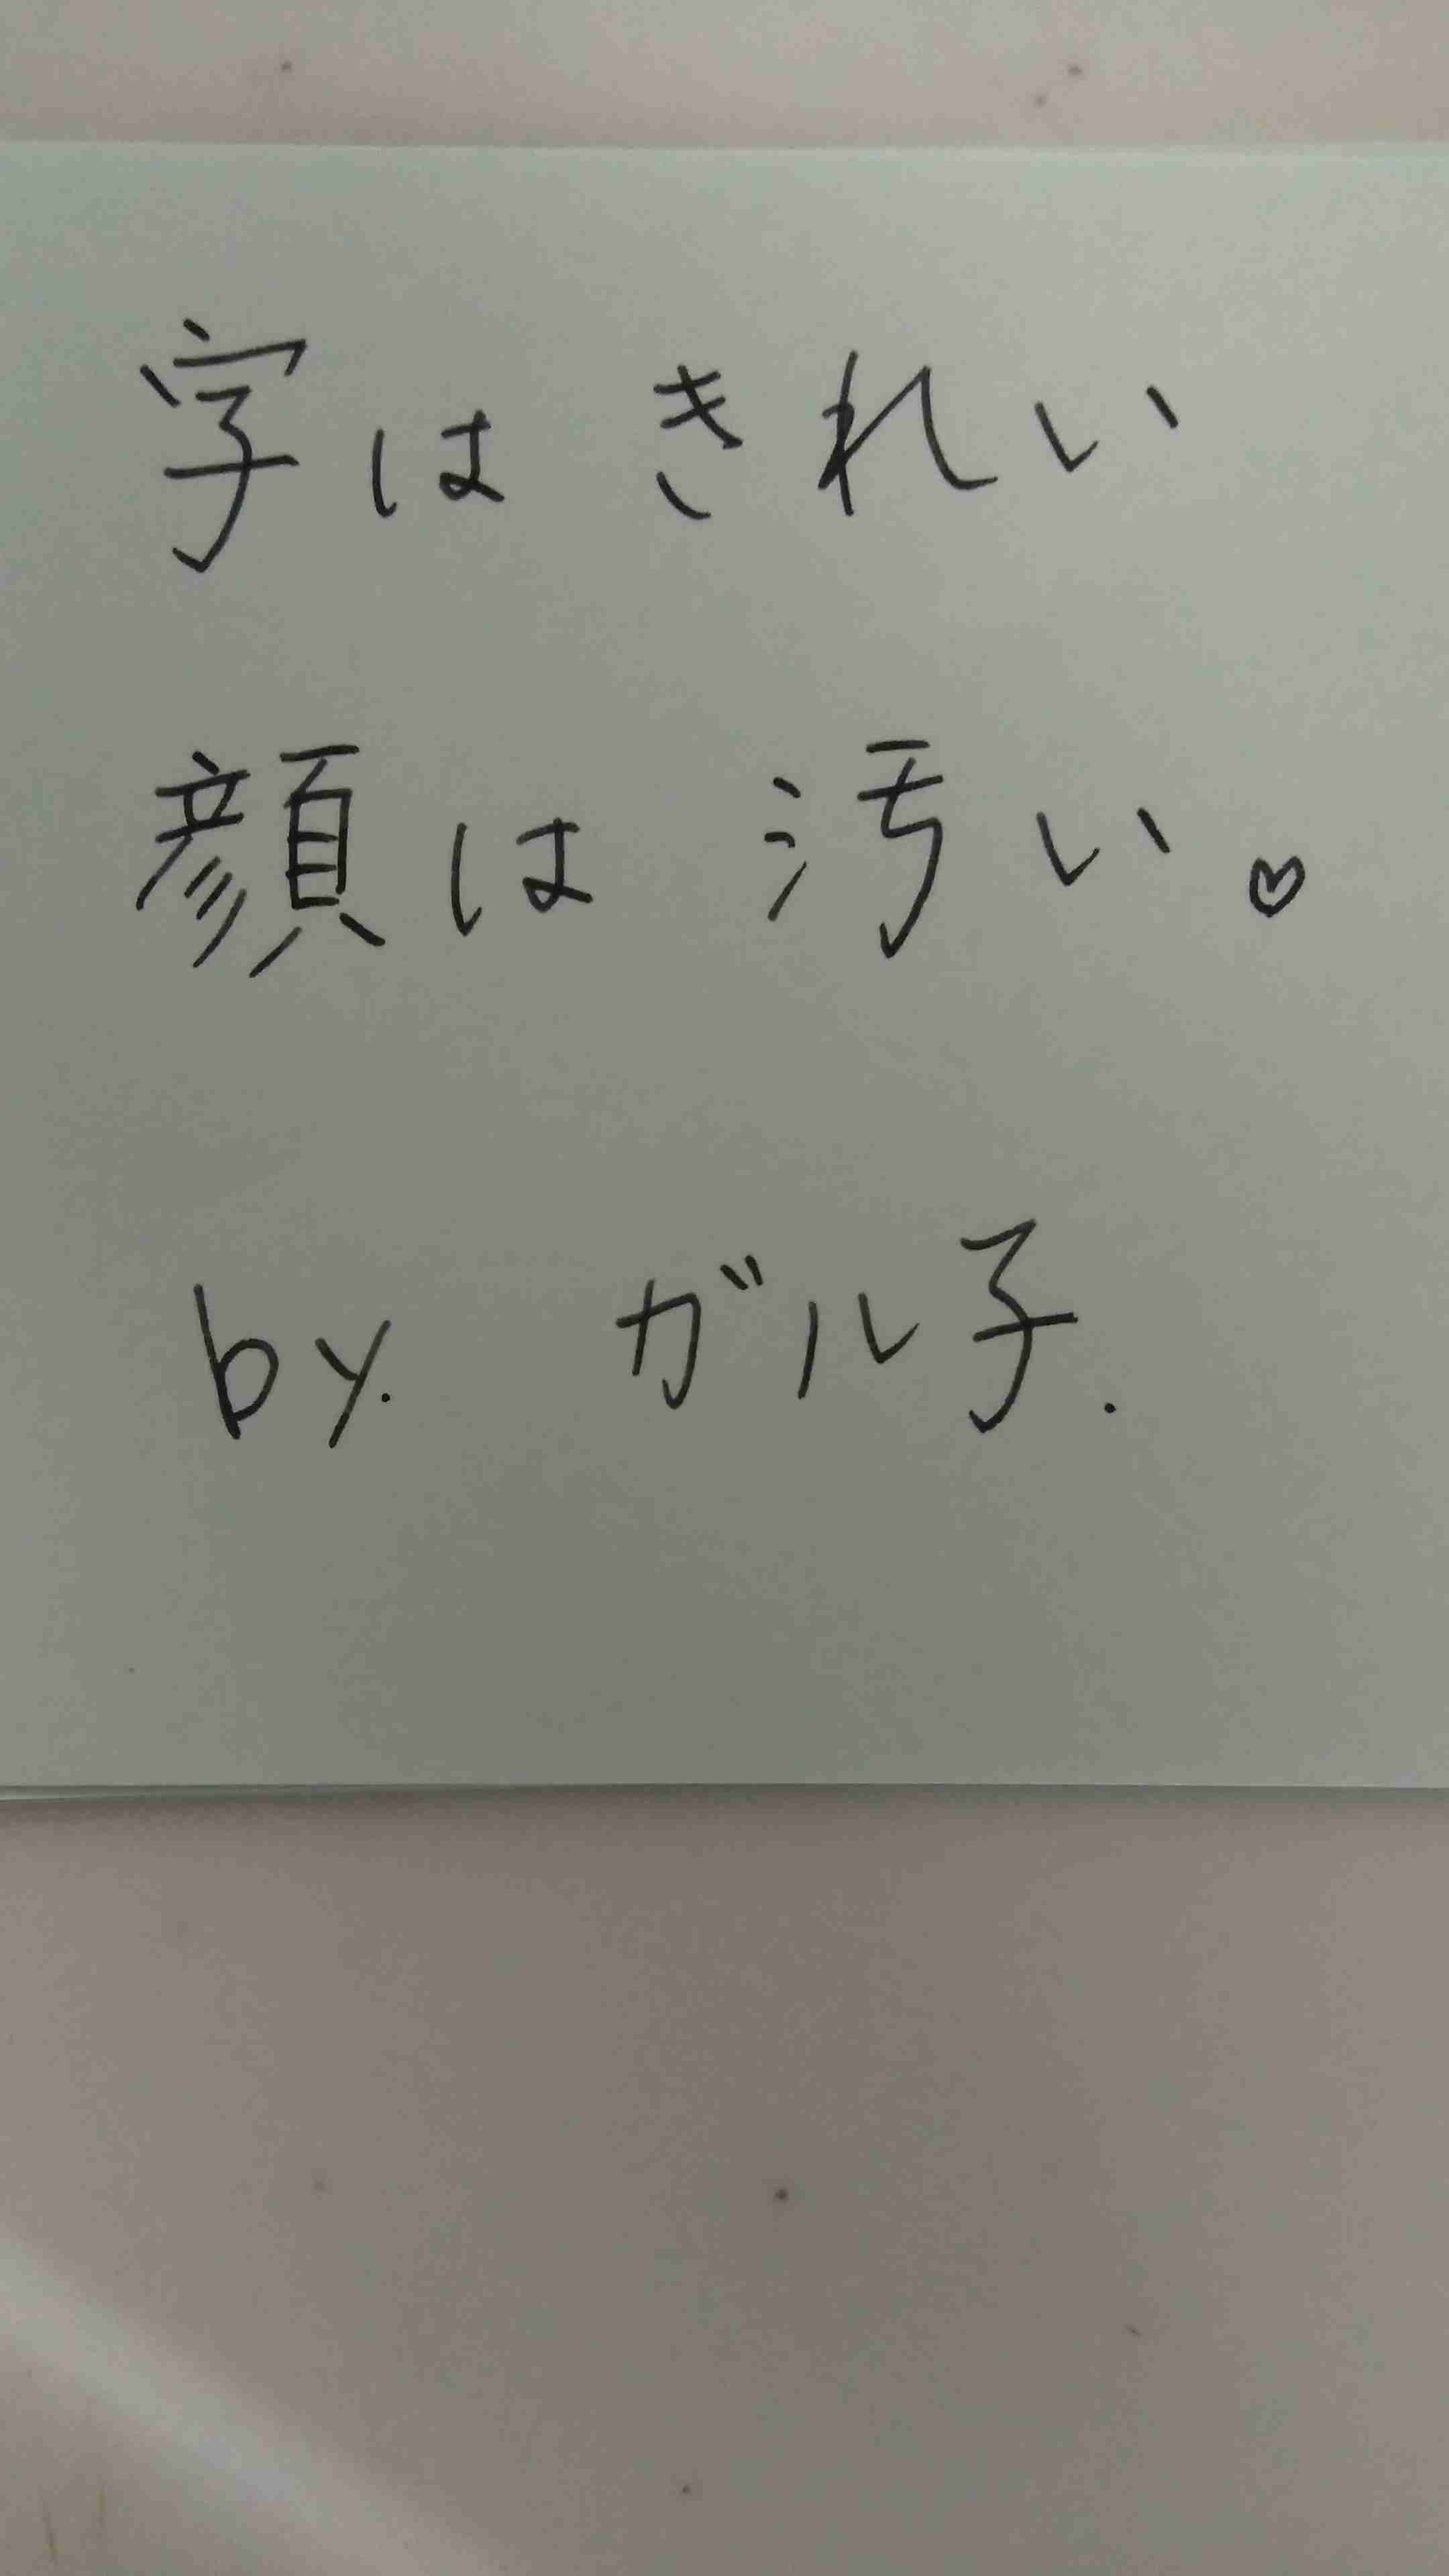 字はきれい
顔は汚い。♡
by. ガル子.